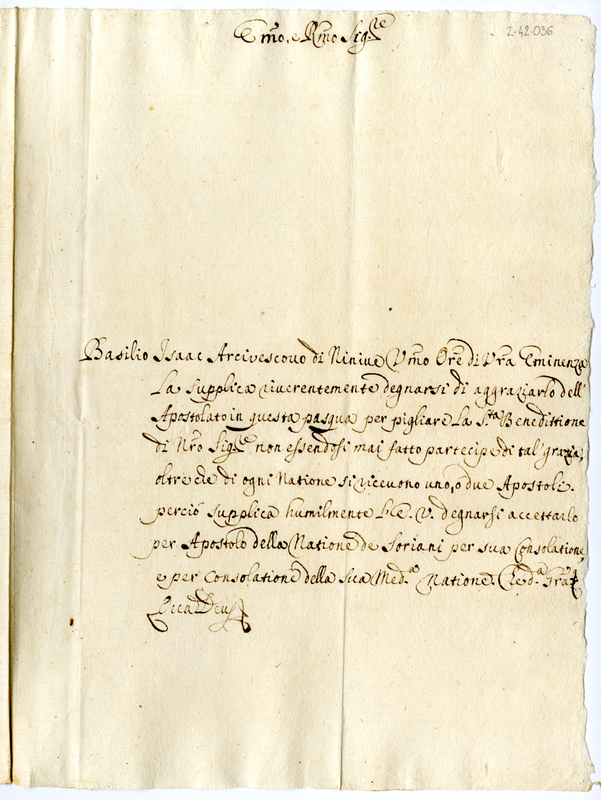 Emo, e Rmo Sig.re
2-42-036
Basilio Isaac Arcivescovo di Ninive Vmo Ore di Vra Eminenza
La supplica riverentemente degnarsi di aggraziarlo dell'
Apostolato in questa pasqua per pigliare La S.ta Benedittione
di Nro Sig.re non essendosi mai fatto partecipe di tal' grazia;
oltre che di ogni Natione si ricevono uno, o due Apostoli.
perciò supplica humilmente L'E. V. degnarsi accettarlo
per Apostolo della Natione de Soriani per sua Consolatione,
e per Consolatione della sua Med.a Natione. Che d.a Gra
Qua Deus